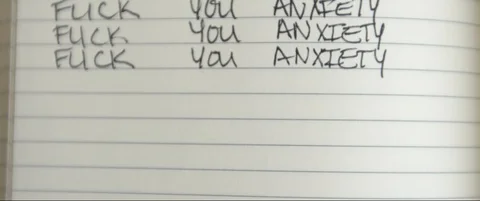 FUCK YOU ANXIETY
FUCK YOU ANXIETY
FUCK YOU ANXIETY